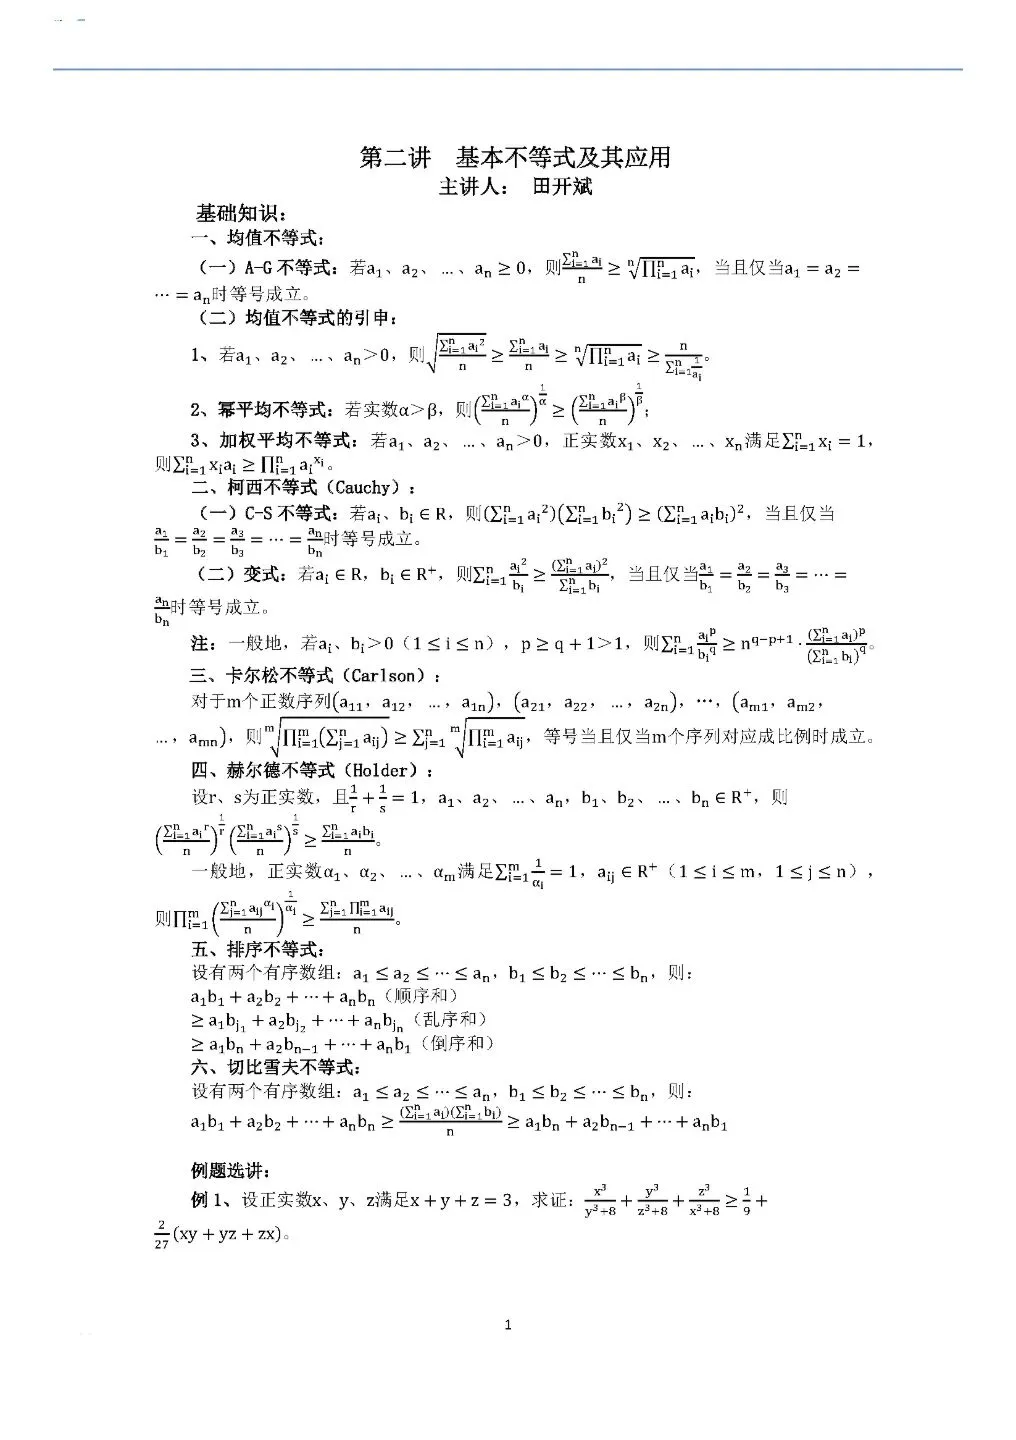 第二讲 基本不等式及其应用
主讲人： 田开斌
基础知识：
一、均值不等式：
（一）A-G 不等式：若a₁、a₂、 …、aₙ ≥ 0，则(∑ⁿᵢ₌₁ aᵢ)/n ≥ ⁿ√(∏ⁿᵢ₌₁ aᵢ)，当且仅当a₁ = a₂ =
⋯ = aₙ时等号成立。
（二）均值不等式的引申：
1、若a₁、a₂、 …、aₙ＞0，则√((∑ⁿᵢ₌₁ aᵢ²)/n) ≥ (∑ⁿᵢ₌₁ aᵢ)/n ≥ ⁿ√(∏ⁿᵢ₌₁ aᵢ) ≥ n/(∑ⁿᵢ₌₁ 1/aᵢ)。
2、幂平均不等式：若实数α＞β，则((∑ⁿᵢ₌₁ aᵢ^α)/n)^(1/α) ≥ ((∑ⁿᵢ₌₁ aᵢ^β)/n)^(1/β)；
3、加权平均不等式：若a₁、a₂、 …、aₙ＞0，正实数x₁、x₂、 …、xₙ满足∑ⁿᵢ₌₁ xᵢ = 1，
则∑ⁿᵢ₌₁ xᵢaᵢ ≥ ∏ⁿᵢ₌₁ aᵢ^(xᵢ)。
二、柯西不等式（Cauchy）：
（一）C-S 不等式：若aᵢ、bᵢ ∈ R，则(∑ⁿᵢ₌₁ aᵢ²)(∑ⁿᵢ₌₁ bᵢ²) ≥ (∑ⁿᵢ₌₁ aᵢbᵢ)²，当且仅当
a₁/b₁ = a₂/b₂ = a₃/b₃ = ⋯ = aₙ/bₙ时等号成立。
（二）变式：若aᵢ ∈ R，bᵢ ∈ R⁺，则∑ⁿᵢ₌₁ aᵢ²/bᵢ ≥ (∑ⁿᵢ₌₁ aᵢ)²/(∑ⁿᵢ₌₁ bᵢ)，当且仅当a₁/b₁ = a₂/b₂ = a₃/b₃ = ⋯ =
aₙ/bₙ时等号成立。
注：一般地，若aᵢ、bᵢ＞0（1 ≤ i ≤ n），p ≥ q + 1＞1，则∑ⁿᵢ₌₁ aᵢ^p/bᵢ^q ≥ n^(q−p+1) · (∑ⁿᵢ₌₁ aᵢ)^p/(∑ⁿᵢ₌₁ bᵢ)^q。
三、卡尔松不等式（Carlson）：
对于m个正数序列(a₁₁，a₁₂， …，a₁ₙ)，(a₂₁，a₂₂， …，a₂ₙ)，⋯，(aₘ₁，aₘ₂，
…，aₘₙ)，则ᵐ√(∏ᵐᵢ₌₁(∑ⁿⱼ₌₁ aᵢⱼ)) ≥ ∑ⁿⱼ₌₁ ᵐ√(∏ᵐᵢ₌₁ aᵢⱼ)，等号当且仅当m个序列对应成比例时成立。
四、赫尔德不等式（Holder）：
设r、s为正实数，且1/r + 1/s = 1，a₁、a₂、 …、aₙ，b₁、b₂、 …、bₙ ∈ R⁺，则
((∑ⁿᵢ₌₁ aᵢ^r)/n)^(1/r) ((∑ⁿᵢ₌₁ aᵢ^s)/n)^(1/s) ≥ (∑ⁿᵢ₌₁ aᵢbᵢ)/n。
一般地，正实数α₁、α₂、 …、αₘ满足∑ᵐᵢ₌₁ 1/αᵢ = 1，aᵢⱼ ∈ R⁺（1 ≤ i ≤ m，1 ≤ j ≤ n），
则∏ᵐᵢ₌₁ ((∑ⁿⱼ₌₁ aᵢⱼ^(αᵢ))/n)^(1/αᵢ) ≥ (∑ⁿⱼ₌₁ ∏ᵐᵢ₌₁ aᵢⱼ)/n。
五、排序不等式：
设有两个有序数组：a₁ ≤ a₂ ≤ ⋯ ≤ aₙ，b₁ ≤ b₂ ≤ ⋯ ≤ bₙ，则：
a₁b₁ + a₂b₂ + ⋯ + aₙbₙ（顺序和）
≥ a₁b_(j₁) + a₂b_(j₂) + ⋯ + aₙb_(jₙ)（乱序和）
≥ a₁bₙ + a₂bₙ₋₁ + ⋯ + aₙb₁（倒序和）
六、切比雪夫不等式：
设有两个有序数组：a₁ ≤ a₂ ≤ ⋯ ≤ aₙ，b₁ ≤ b₂ ≤ ⋯ ≤ bₙ，则：
a₁b₁ + a₂b₂ + ⋯ + aₙbₙ ≥ (∑ⁿᵢ₌₁ aᵢ)(∑ⁿᵢ₌₁ bᵢ)/n ≥ a₁bₙ + a₂bₙ₋₁ + ⋯ + aₙb₁
例题选讲：
例 1、设正实数x、y、z满足x + y + z = 3，求证：x³/(y³+8) + y³/(z³+8) + z³/(x³+8) ≥ 1/9 +
2/27 (xy + yz + zx)。
1